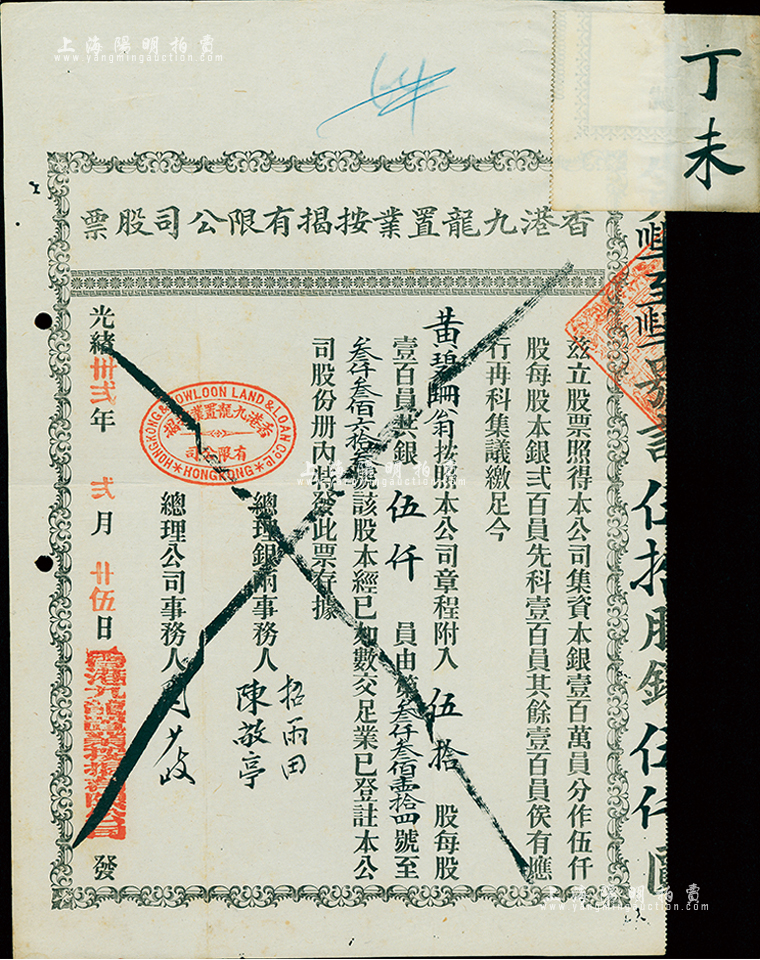 上海陽明拍賣
www.yangmingauction.com
丁未
香港九龍置業按揭有限公司股票
茲立股票照得本公司集資本銀壹百萬員分作伍仟
股每股本銀弍百員先科壹百員其餘壹百員俟有應
行再科集議繳足今
黃碧珊翁按照本公司章程附入 伍拾 股每股
壹百員共銀 伍仟 員由第叁仟叁佰壹拾四號至
叁仟叁佰六拾叁 該股本經已如數交足業已登註本公
司股份册內 發此票存據
總理銀兩事務人 招雨田 陳敬亭
總理公司事務人 周少岐
光緒卅弍年 弍月 廿伍日 發
HONGKONG & KOWLOON LAND & LOAN Co. Ld.
香港九龍置業按揭
有限公司
HONGKONG
香港九龍置業按揭有限公司
伍拾股銀 伍仟
上海陽明拍賣
www.yangmingauction.com
上海陽明拍賣
www.yangmingauction.com